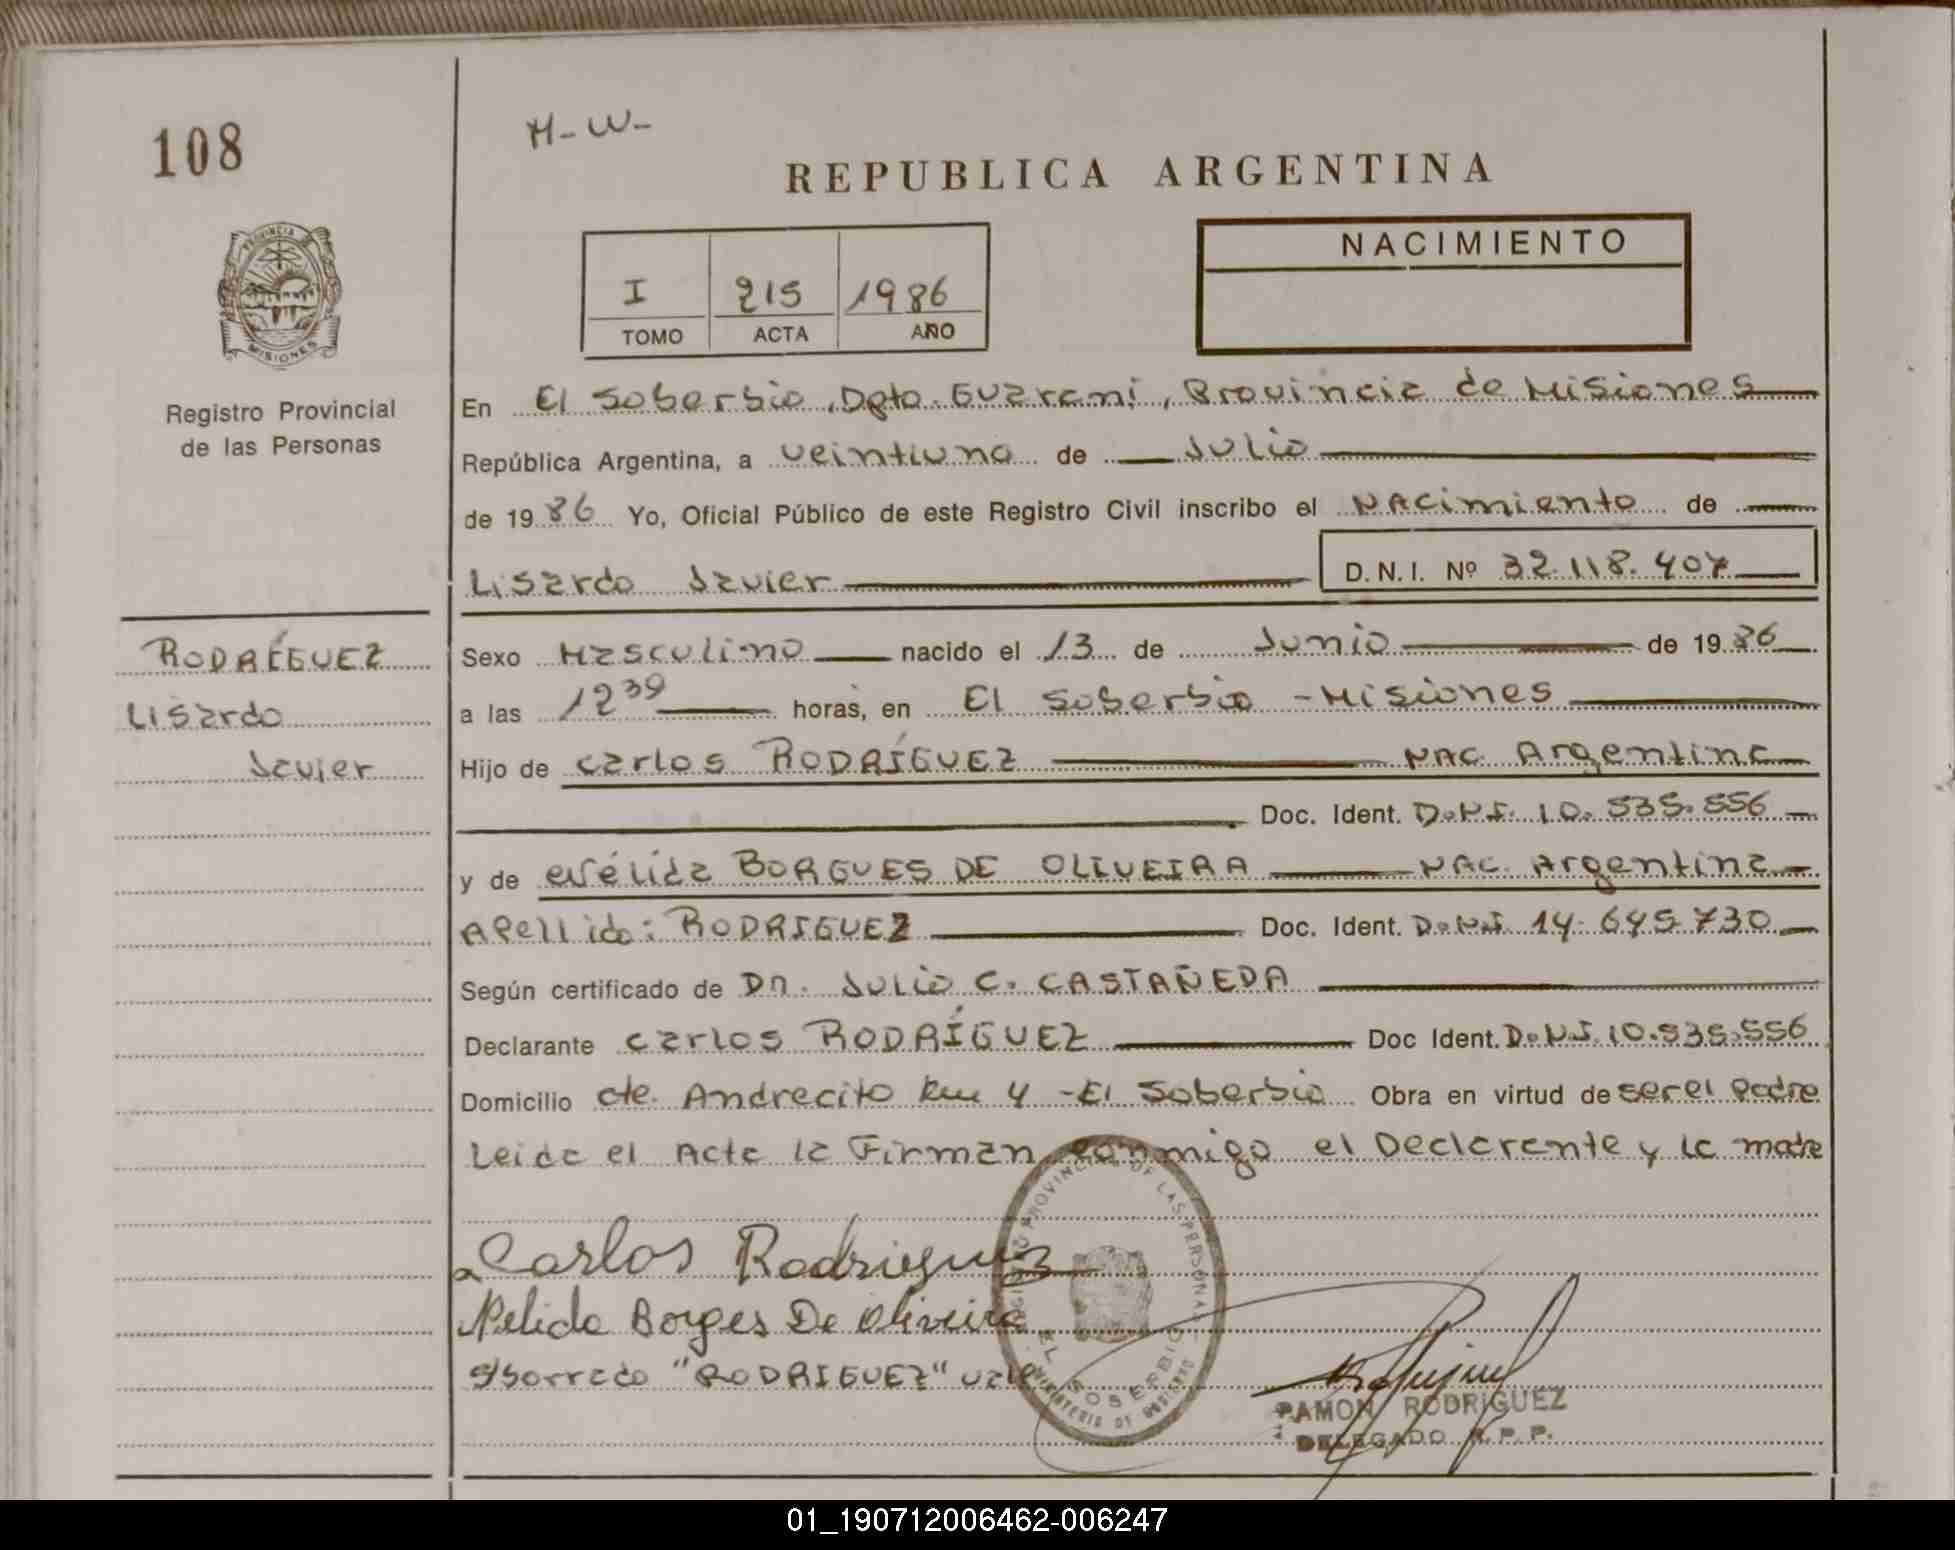 108
H-W-
REPUBLICA ARGENTINA
PROVINCIA DE
MISIONES
Registro Provincial
de las Personas
I 215 1986
TOMO ACTA AÑO
NACIMIENTO
En El Soberbio, Dpto. Guaraní, Provincia de Misiones
República Argentina, a veintiuno de Julio
de 1986 Yo, Oficial Público de este Registro Civil inscribo el Nacimiento de
Lisardo Javier D.N.I. Nº 32.118.407
RODRÍGUEZ
Lisardo
Javier
Sexo Masculino nacido el 13 de Junio de 1986
a las 12 39 horas, en El Soberbio - Misiones
Hijo de Carlos RODRÍGUEZ NAC. Argentina
Doc. Ident. D.N.I. 10.535.556
y de Nélida BORGUES DE OLIVEIRA NAC. Argentina
Apellido: RODRIGUEZ Doc. Ident. D.N.I. 14.645.730
Según certificado de Dn. Julio C. CASTAÑEDA
Declarante Carlos RODRÍGUEZ Doc Ident. D.N.I. 10.535.556
Domicilio cte. Andrecito km 4 - El Soberbio Obra en virtud de ser el Padre
Leida el Acta la Firman conmigo el Declarante y la madre
REGISTRO PROVINCIAL DE LAS PERSONAS
EL SOBERBIO
MINISTERIO DE GOBIERNO
Carlos Rodriguez
Nelida Borges De Oliveira
S/borrado "RODRIGUEZ" vale
RAMON RODRIGUEZ
DELEGADO R.P.P.
01_190712006462-006247